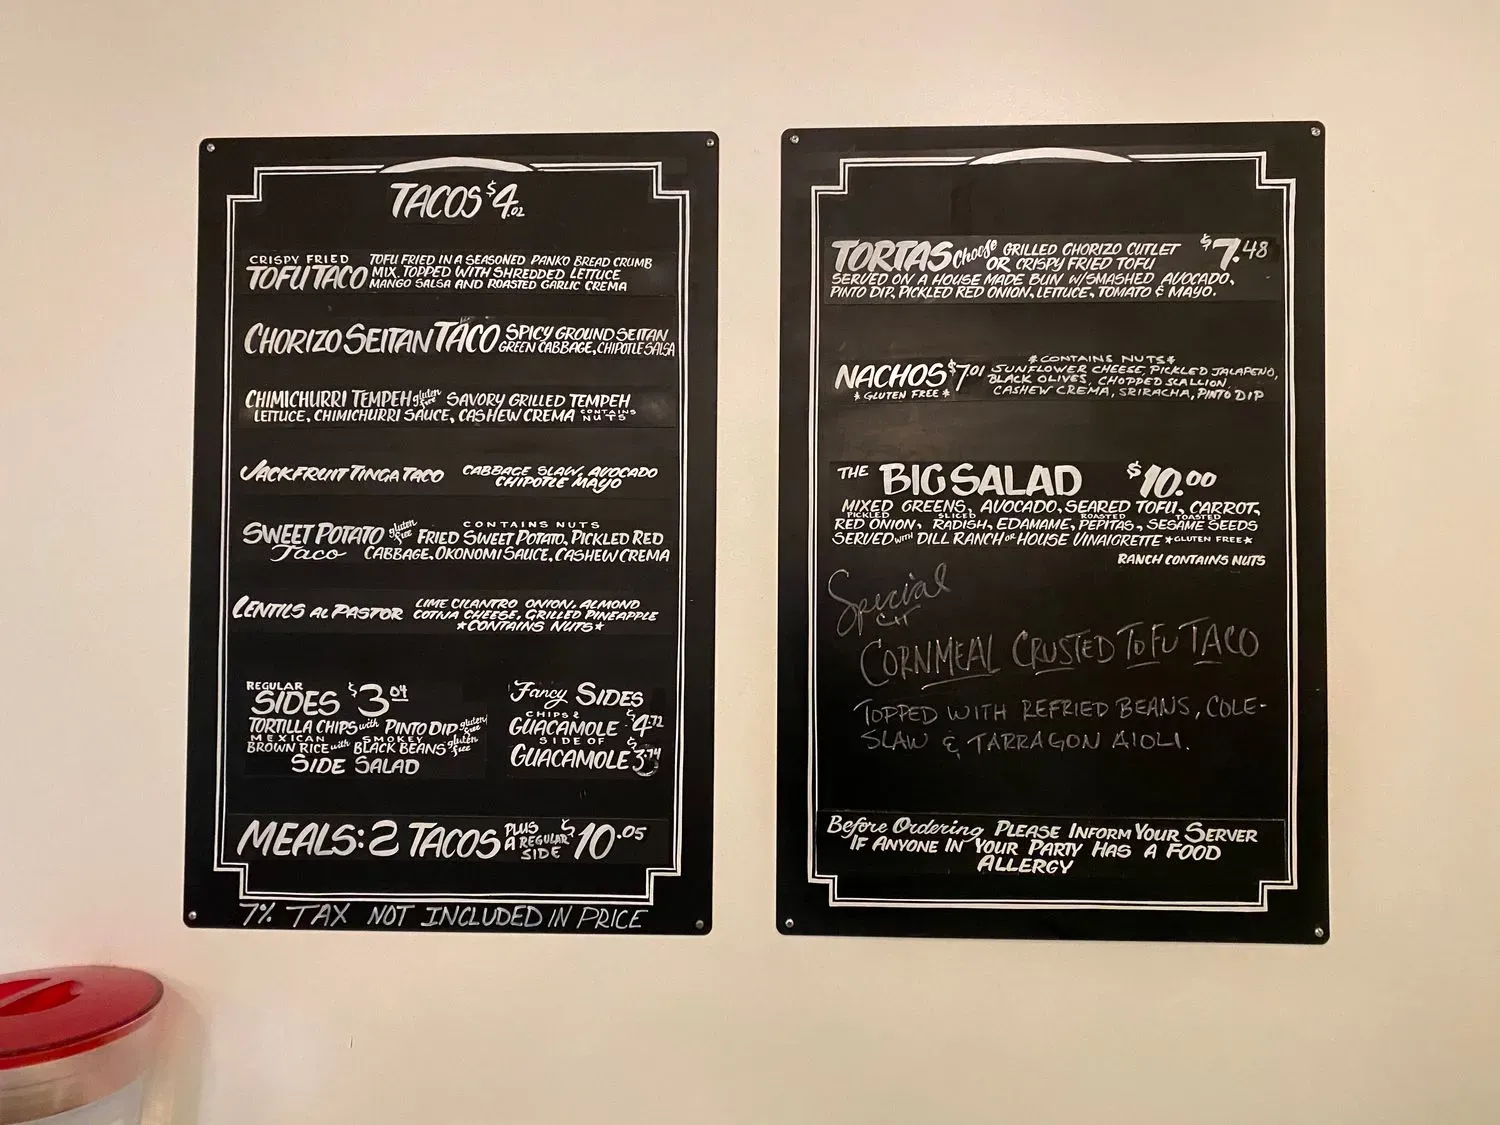 TACOS $4.02
CRISPY FRIED
TOFU TACO
TOFU FRIED IN A SEASONED PANKO BREAD CRUMB
MIX. TOPPED WITH SHREDDED LETTUCE
MANGO SALSA AND ROASTED GARLIC CREMA
CHORIZO SEITAN TACO
SPICY GROUND SEITAN
GREEN CABBAGE, CHIPOTLE SALSA
CHIMICHURRI TEMPEH gluten free SAVORY GRILLED TEMPEH
LETTUCE, CHIMICHURRI SAUCE, CASHEW CREMA CONTAINS NUTS
JACKFRUIT TINGA TACO
CABBAGE SLAW, AVOCADO
CHIPOTLE MAYO
SWEET POTATO gluten free
Taco
CONTAINS NUTS
FRIED SWEET POTATO, PICKLED RED
CABBAGE, OKONOMI SAUCE, CASHEW CREMA
LENTILS AL PASTOR
LIME CILANTRO ONION, ALMOND
COTIJA CHEESE, GRILLED PINEAPPLE
*CONTAINS NUTS*
REGULAR
SIDES $3.04
TORTILLA CHIPS with PINTO DIP gluten free
MEXICAN BROWN RICE with SMOKEY BLACK BEANS gluten free
SIDE SALAD
Fancy SIDES
CHIPS &
GUACAMOLE $4.72
SIDE OF
GUACAMOLE $3.74
MEALS: 2 TACOS PLUS A REGULAR SIDE $10.05
7% TAX NOT INCLUDED IN PRICE
TORTAS Choose GRILLED CHORIZO CUTLET $7.48
OR CRISPY FRIED TOFU
SERVED ON A HOUSE MADE BUN W/SMASHED AVOCADO,
PINTO DIP, PICKLED RED ONION, LETTUCE, TOMATO & MAYO.
NACHOS $7.01
*GLUTEN FREE*
*CONTAINS NUTS*
SUNFLOWER CHEESE, PICKLED JALAPENO,
BLACK OLIVES, CHOPPED SCALLION,
CASHEW CREMA, SRIRACHA, PINTO DIP
THE BIG SALAD $10.00
MIXED GREENS, AVOCADO, SEARED TOFU, CARROT,
PICKLED RED ONION, SLICED RADISH, EDAMAME, ROASTED PEPITAS, TOASTED SESAME SEEDS
SERVED WITH DILL RANCH or HOUSE VINAIGRETTE *GLUTEN FREE*
RANCH CONTAINS NUTS
Special
CORNMEAL CRUSTED TOFU TACO
TOPPED WITH REFRIED BEANS, COLE-
SLAW & TARRAGON AIOLI.
Before Ordering PLEASE INFORM YOUR SERVER
IF ANYONE IN YOUR PARTY HAS A FOOD
ALLERGY